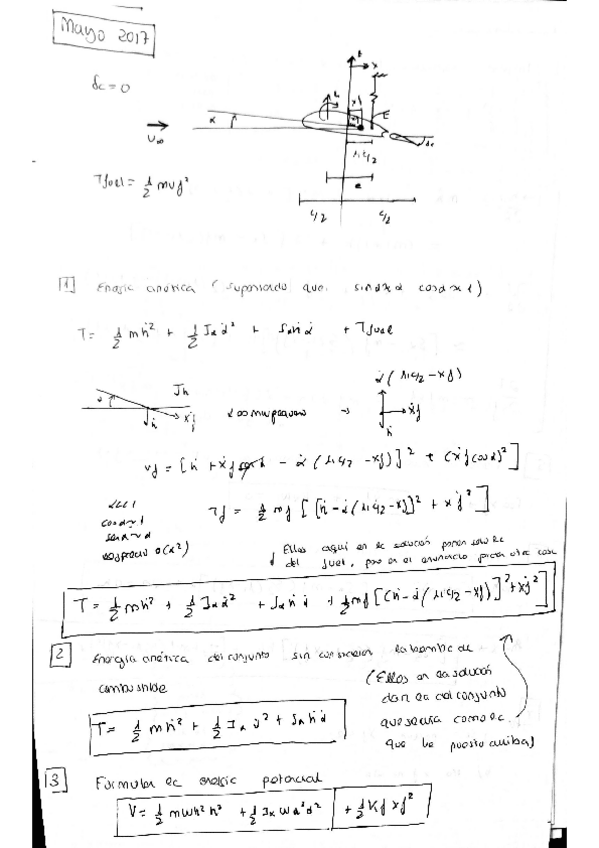 Mayo 2017
δc = 0
U∞
α
L
E
x
δc
λ1 c/2
e
c/2 c/2
Tfuel = 1/2 m vf²
1 Energía cinética (suponiendo que sinα≈α cosα≈1)
T = 1/2 mḣ² + 1/2 Iα α̇² + Sαḣα̇ + Tfuel
α̇(λ1c/2 - xf)
α es muy pequeño → ẋf
ḣ
vf = [ḣ + ẋf senα - α̇(λ1c/2 - xf)]² + (ẋf cosα)²]
α<<1
cosα≈1
senα≈α
desprecio o(α²)
Tf = 1/2 mf [[ḣ - α̇(λ1c/2 - xf)]² + ẋf²]
Ellos aquí en la solución ponen solo la
del fuel, pero en el enunciado piden otra cosa
T = 1/2 mḣ² + 1/2 Iα α̇² + Sαḣα̇ + 1/2 mf [(ḣ - α̇(λ1c/2 - xf)]² + ẋf²]
2 Energía cinética del conjunto sin considerar la bomba de
combustible
(Ellos en la solución
dan la del conjunto
que sería como la
que he puesto arriba)
T = 1/2 mḣ² + 1/2 Iα α̇² + Sαḣα̇
3 Formular la energía potencial
V = 1/2 mωh² h² + 1/2 Iα ωα² α² + 1/2 Kf xf²